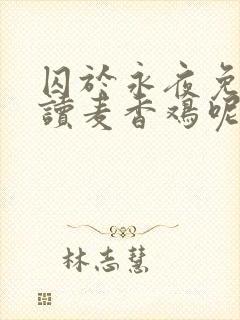 囚於永夜免
讀麦香鸡呢
林志慧